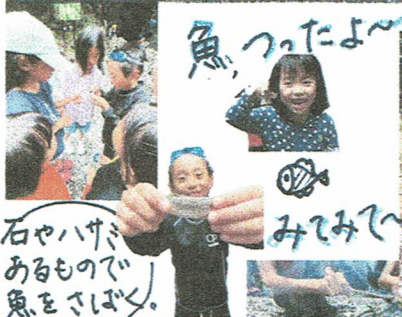 魚、つったよ〜
みてみて〜
石やハサミ
あるもので
魚をさばく!